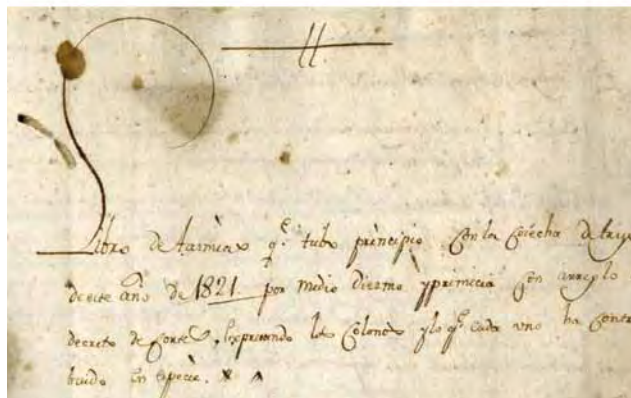 Libro de tazmias q.e tubo principio con la cosecha de
de este año de 1821. por medio Diezmo y primicia con arreglo
decreto de Cortes, expresando los Colonos y lo q.e cada uno ha
buido en especie.